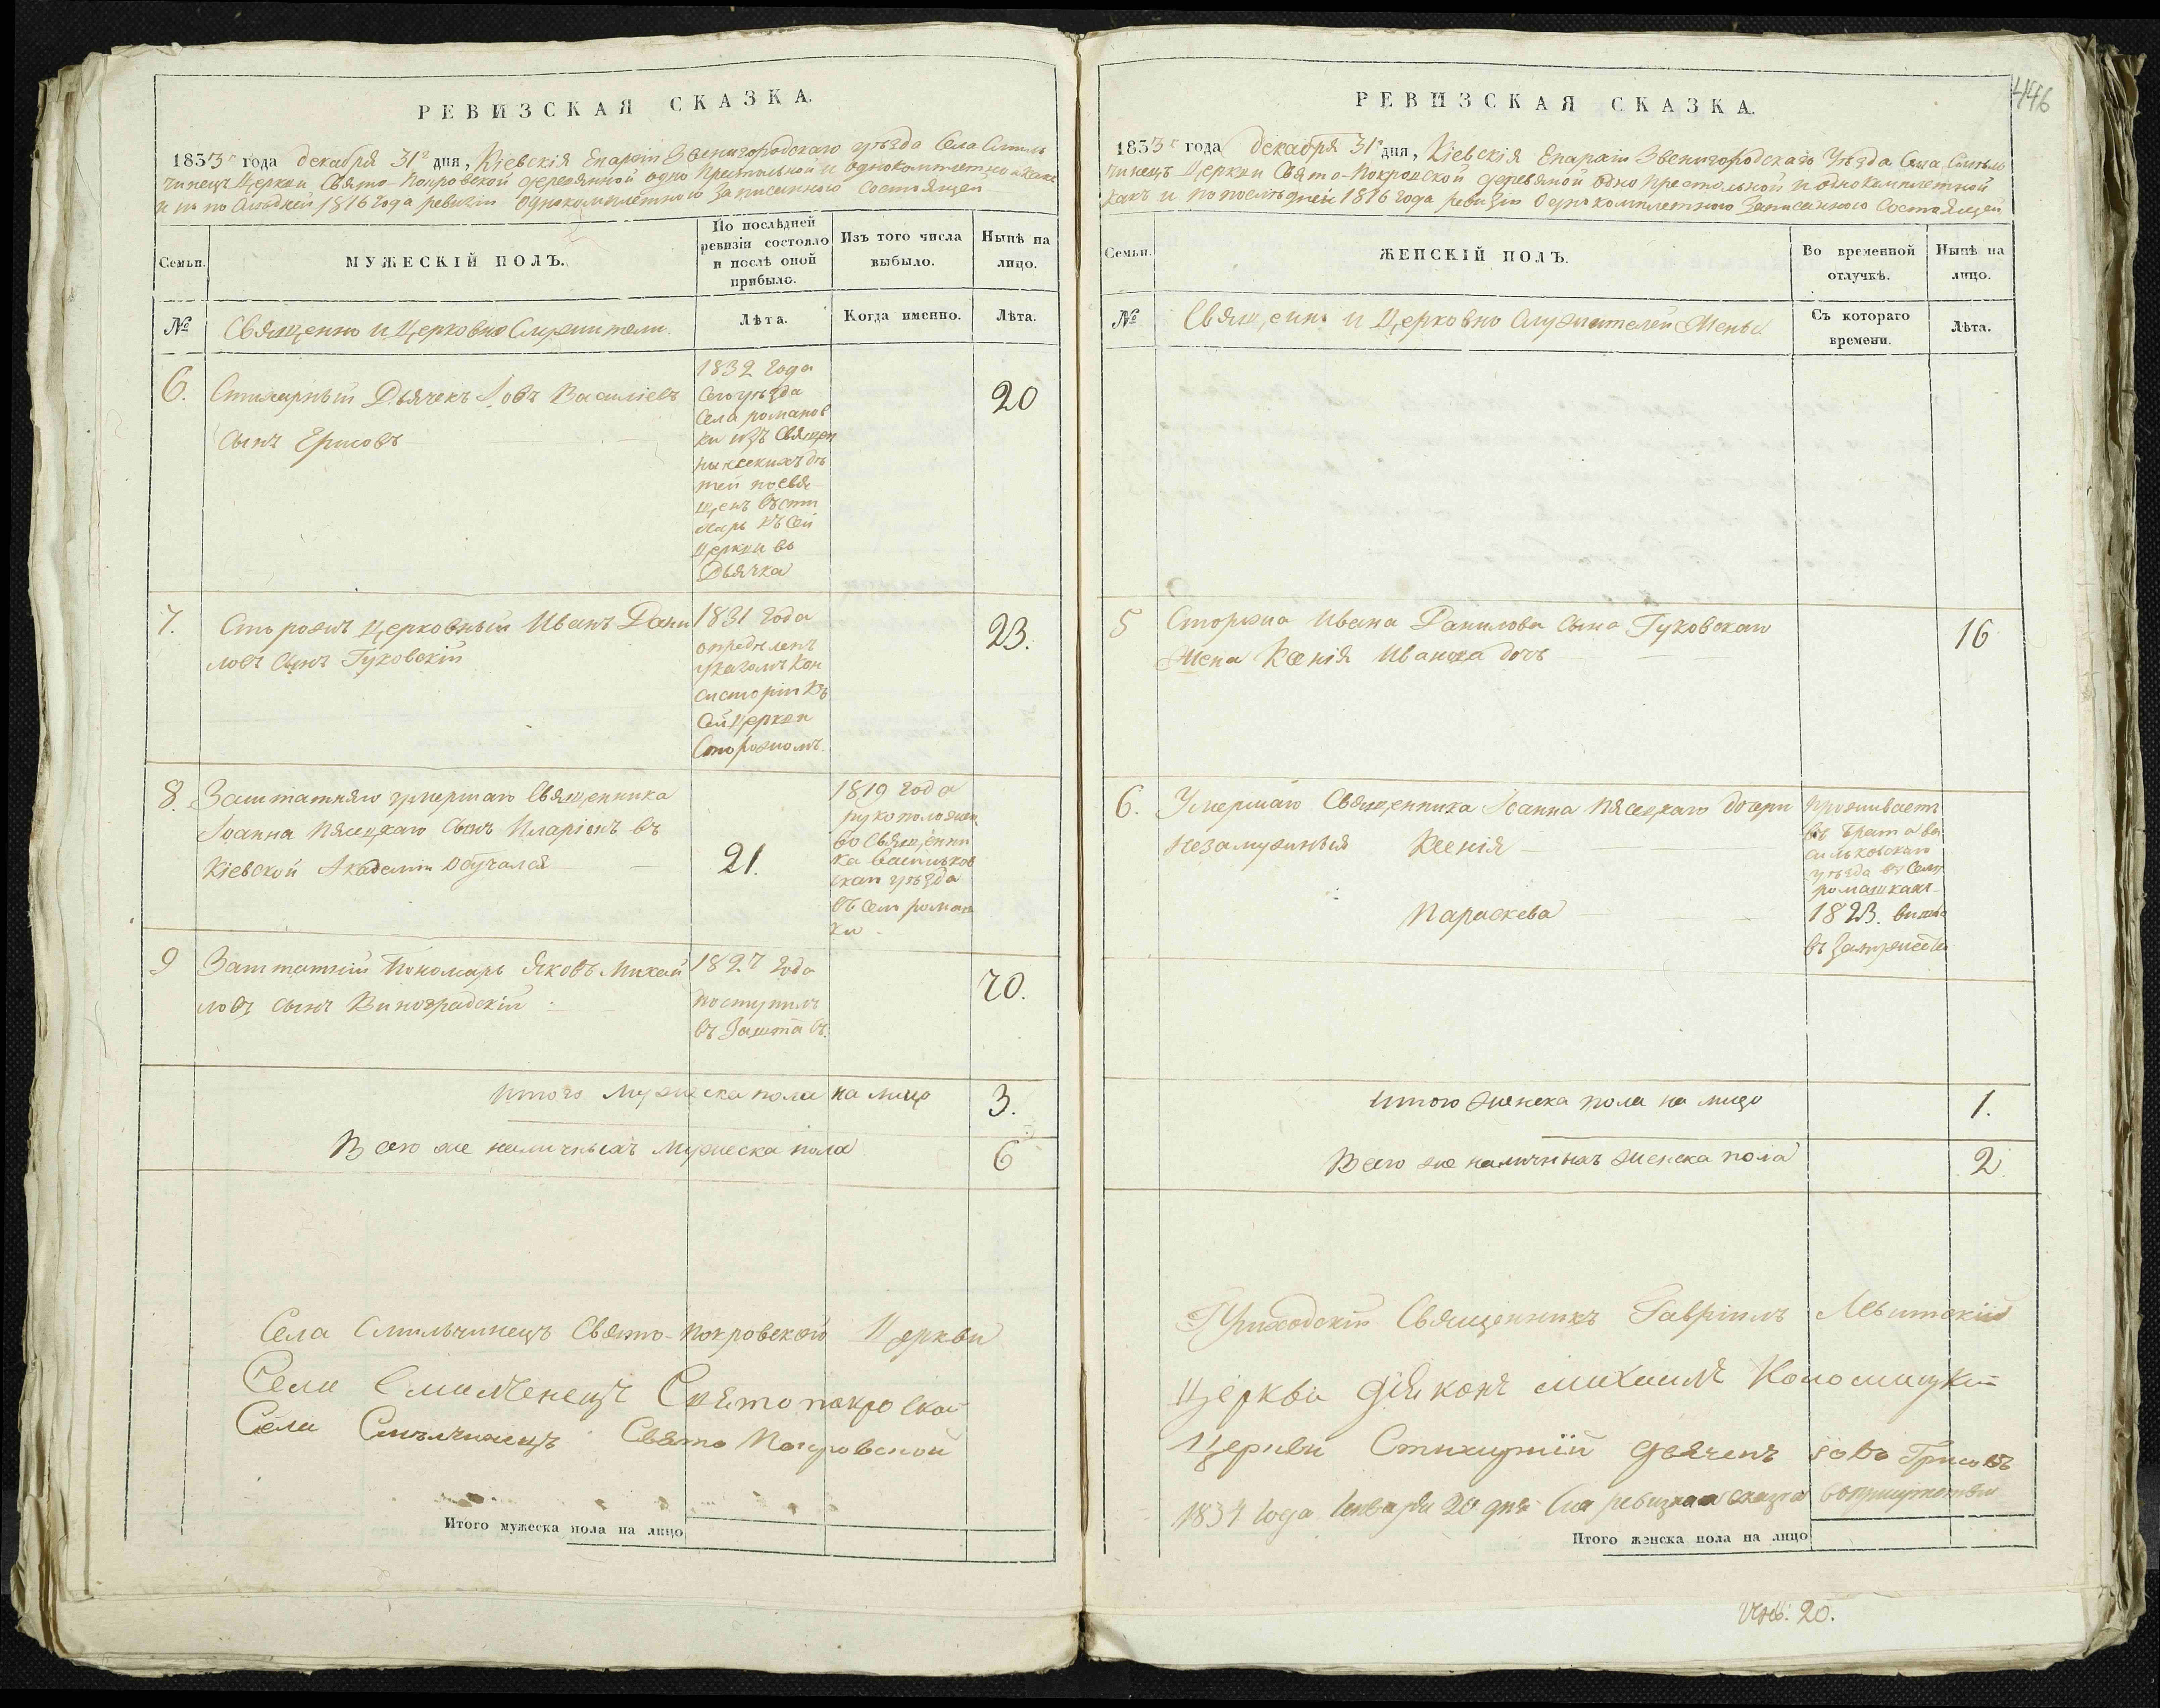 РЕВИЗСКАЯ СКАЗКА.
1833г года декабря 31го дня, Кіевскія Епархіи Звенигородскаго уѣзда Села Смиль
чинецъ Церкви Свято-Покровской деревянной одно престольной и однокомплетной какъ
и по послѣдней 1816 года ревизіи однокомплетною записанною состоящей
Семьи.
МУЖЕСКІЙ ПОЛЪ.
По послѣдней
ревизіи состояло
и послѣ оной
прибыло.
Изъ того числа
выбыло.
Нынѣ на
лицо.
№
Священно и Церковно Служители.
Лѣта.
Когда именно.
Лѣта.
6.
Стихарный Дьячекъ Іовъ Василіевъ
сынъ Ерисовъ
1832 года
сего уѣзда
села романов
ки изъ Священ
ническихъ дѣ
тей посвя
щенъ въ сти
харь къ сей
Церкви во
Дьячка
20
7.
Сторожъ церковный Иванъ Дани
ловъ сынъ Гуковскій
1831 года
опредѣленъ
указомъ Кон
систоріи къ
сей Церкви
Сторожомъ.
23.
8.
Заштатняго умершаго Священника
Іоанна Пясецкаго сынъ Иларіонъ въ
Кіевской Академіи обучался
21.
1819 года
рукоположен
во Священни
ка Васильков
скаго уѣзда
въ село ромаш
ки
9
Заштатній Пономарь Яковъ Михай
ловъ сынъ Виноградскій
1827 года
поступилъ
въ Заштатъ.
70.
Итого Мужеска пола на лицо
3.
Всего же наличныхъ мужеска пола
6
Села Смильчинецъ Свято-Покровской Церкви
Села Смилченецъ Святопокроской
Села Смѣлчинецъ Свято Покровской
Итого мужеска пола на лицо
446
РЕВИЗСКАЯ СКАЗКА.
1833г года декабря 31го дня, Кіевскія Епархіи Звенигородскаго Уѣзда Села Смиль
чинецъ Церкви Свято-Покровской деревяной одно престольной и однокомплетной
какъ и по послѣдней 1816 года ревизіи однокомплетною записанною состоящей
Семьи.
ЖЕНСКІЙ ПОЛЪ.
Во временной
отлучкѣ.
Нынѣ на
лицо.
№
Священно и Церковно Служителей Жены
Съ котораго
времени.
Лѣта.
5
Сторжа Ивана Данилова сына Гуковскаго
Жена Ксенія Иванова дочь
16
6.
Умершаго Священника Іоанна Пясецкаго дочери
незамужнія Ксенія
Параскева
проживаетъ
въ брата Ва
сильковскаго
уѣзда въ селѣ
ромашкахъ
1823. вышла
въ замужество
Итого женска пола на лицо
1.
Всего же наличныхъ женска пола
2.
Приходскій Священникъ Гавріилъ Левитскій
Церкви діяконъ михаилъ Коломицкій
Церкви Стихарній дьяченъ іовъ Ерисовъ
1834 года Января 20 дня сія ревизкая сказка
Итого женска пола на лицо
20.